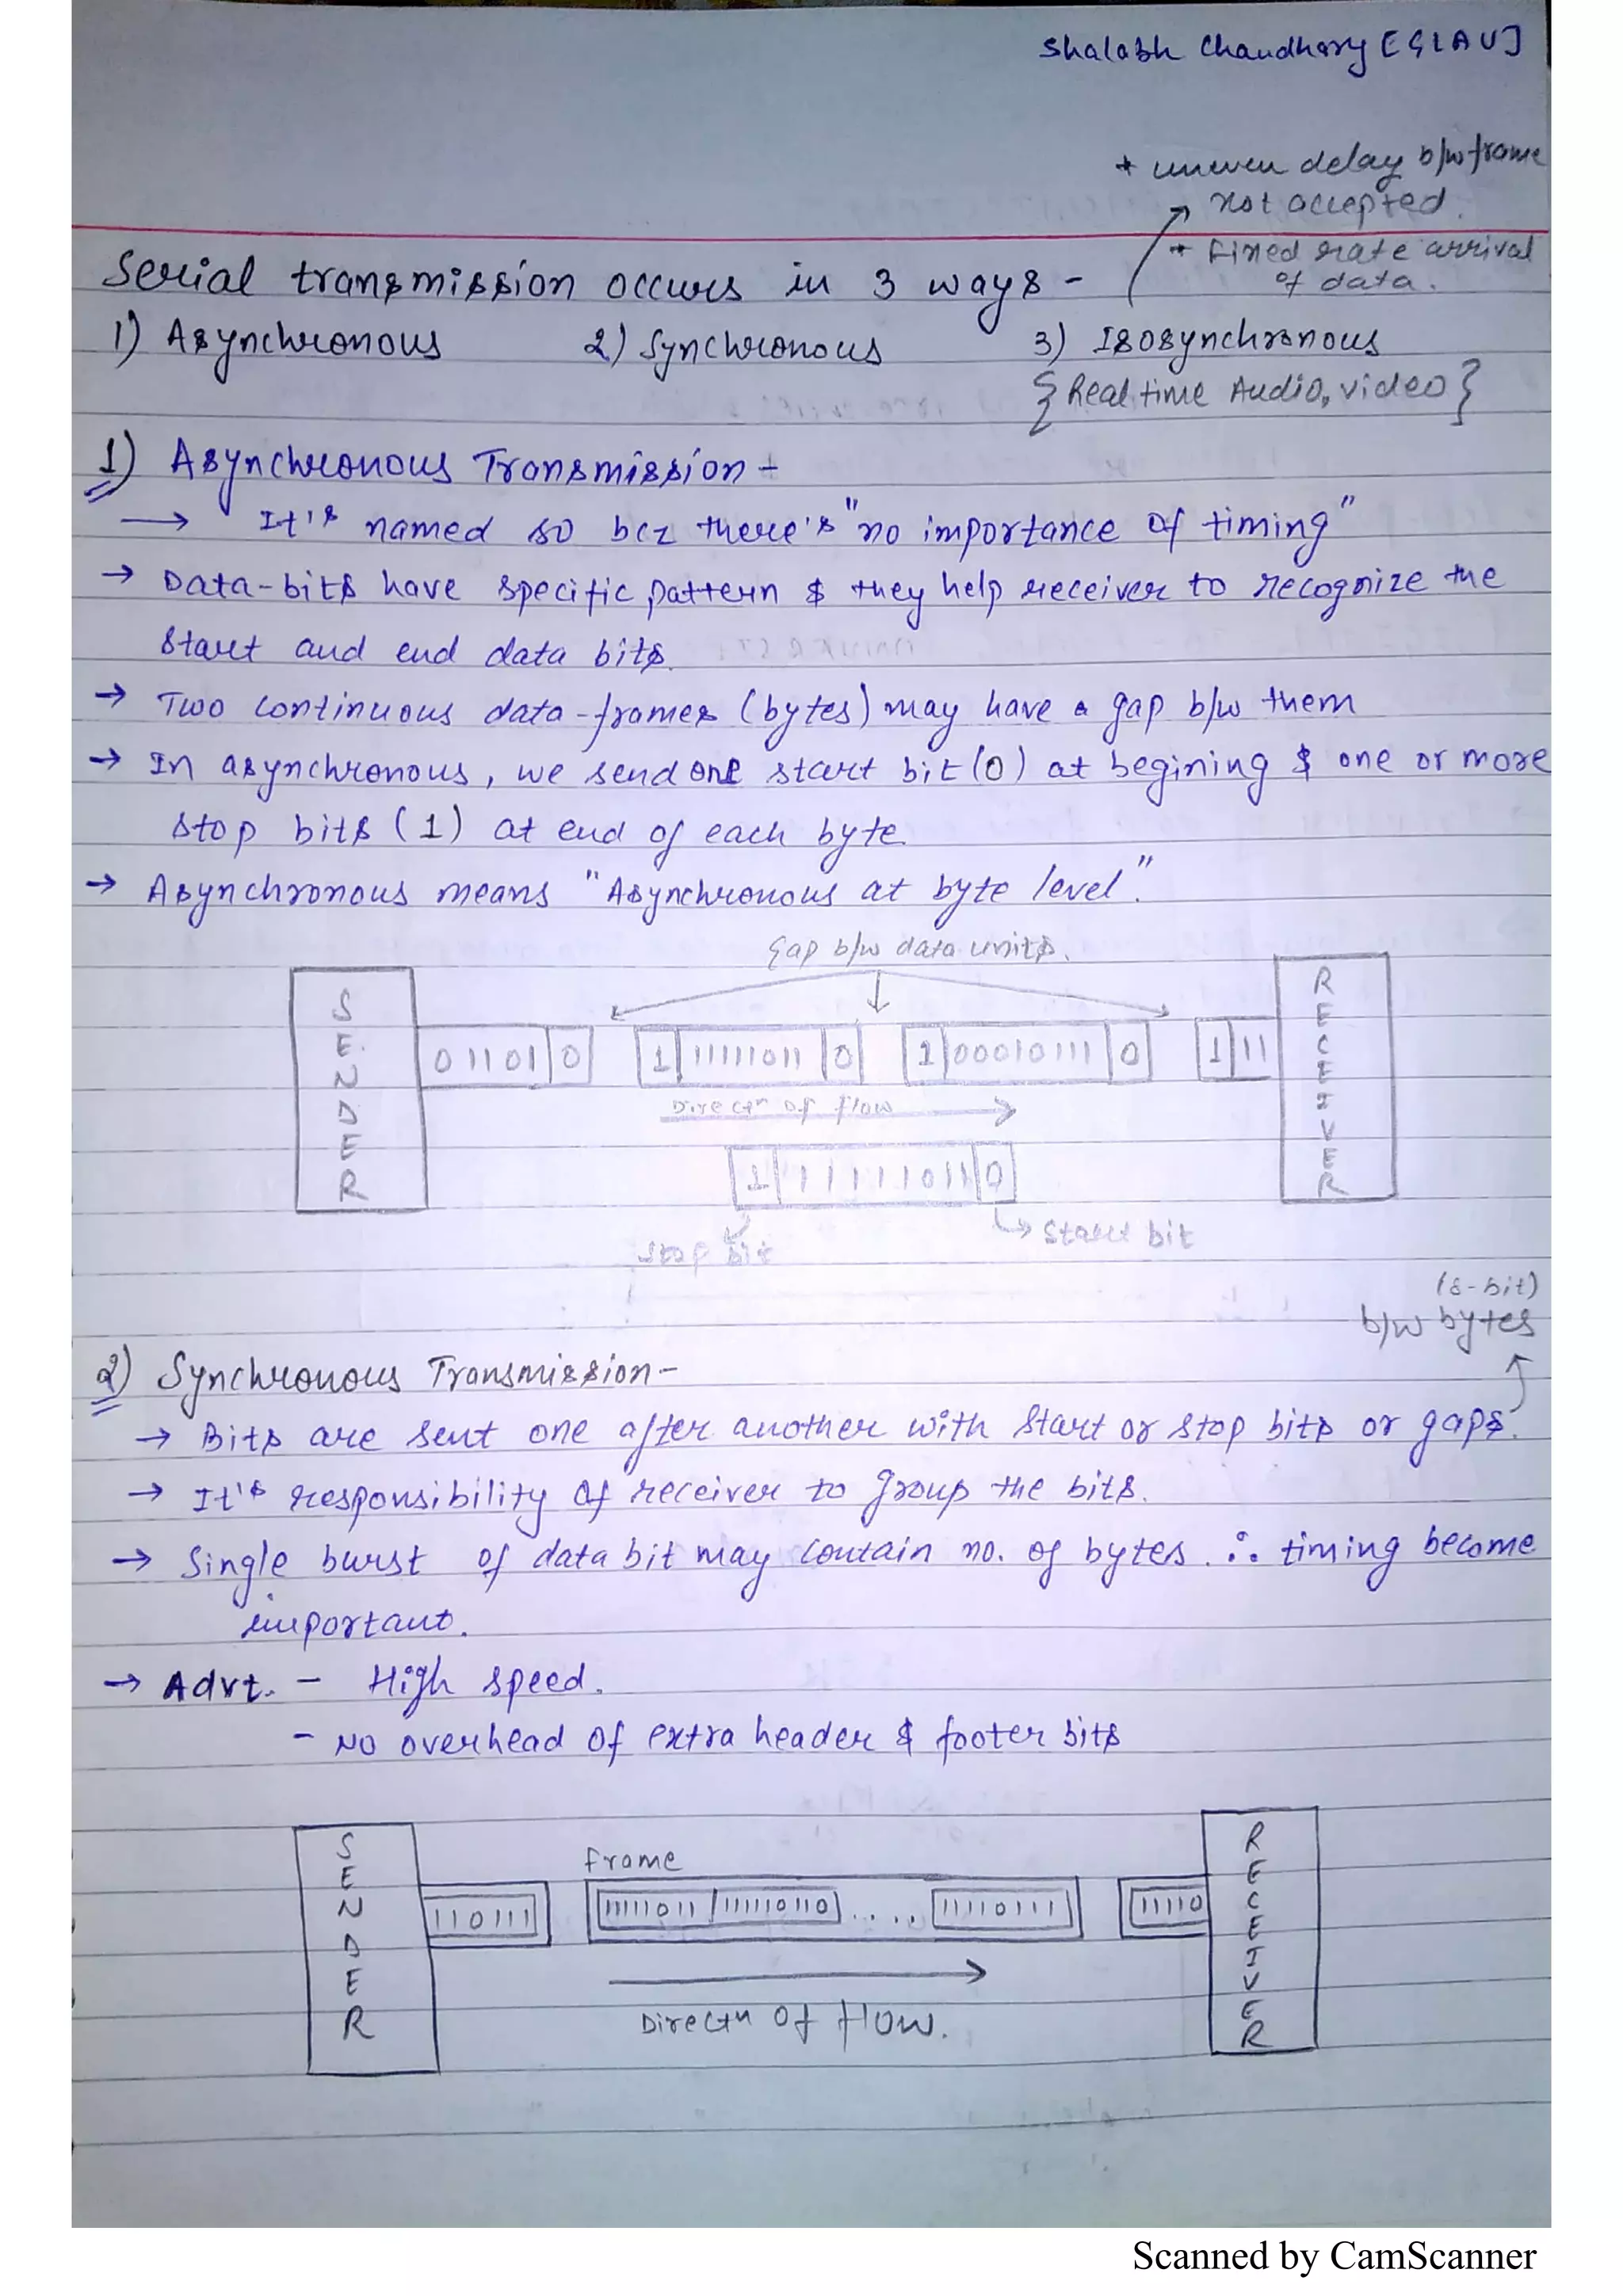 Shalabh Chaudhary [GLAU]
* uneven delay b/w frame
not accepted.
* Fixed rate arrival
of data.
Serial transmission occurs in 3 ways -
1) Asynchronous 2) Synchronous 3) Isosynchronous
{Real time Audio, video}
1) Asynchronous Transmission -
→ It's named so bcz there's "no importance of timing"
→ Data-bits have specific pattern & they help receiver to recognize the
start and end data bits.
→ Two continuous data-frames (bytes) may have a gap b/w them
→ In asynchronous, we send one start bit (0) at begining & one or more
stop bits (1) at end of each byte.
→ Asynchronous means "Asynchronous at byte level".
Gap b/w data units.
SENDER
01101 0
1 11111011 0
1 00010111 0
1 11
RECEIVER
Directn of flow
1 11111011 0
Stop bit
Start bit
(8-bit)
b/w bytes
2) Synchronous Transmission -
→ Bits are sent one after another with start or stop bits or gaps.
→ It's responsibility of receiver to group the bits.
→ Single burst of data bit may contain no. of bytes. ∴ timing become
important.
→ Advt. - High speed.
- No overhead of extra header & footer bits
SENDER
Frame
110111
11111011 11110110 .... 11110111
11110
RECEIVER
Directn of flow.
Scanned by CamScanner